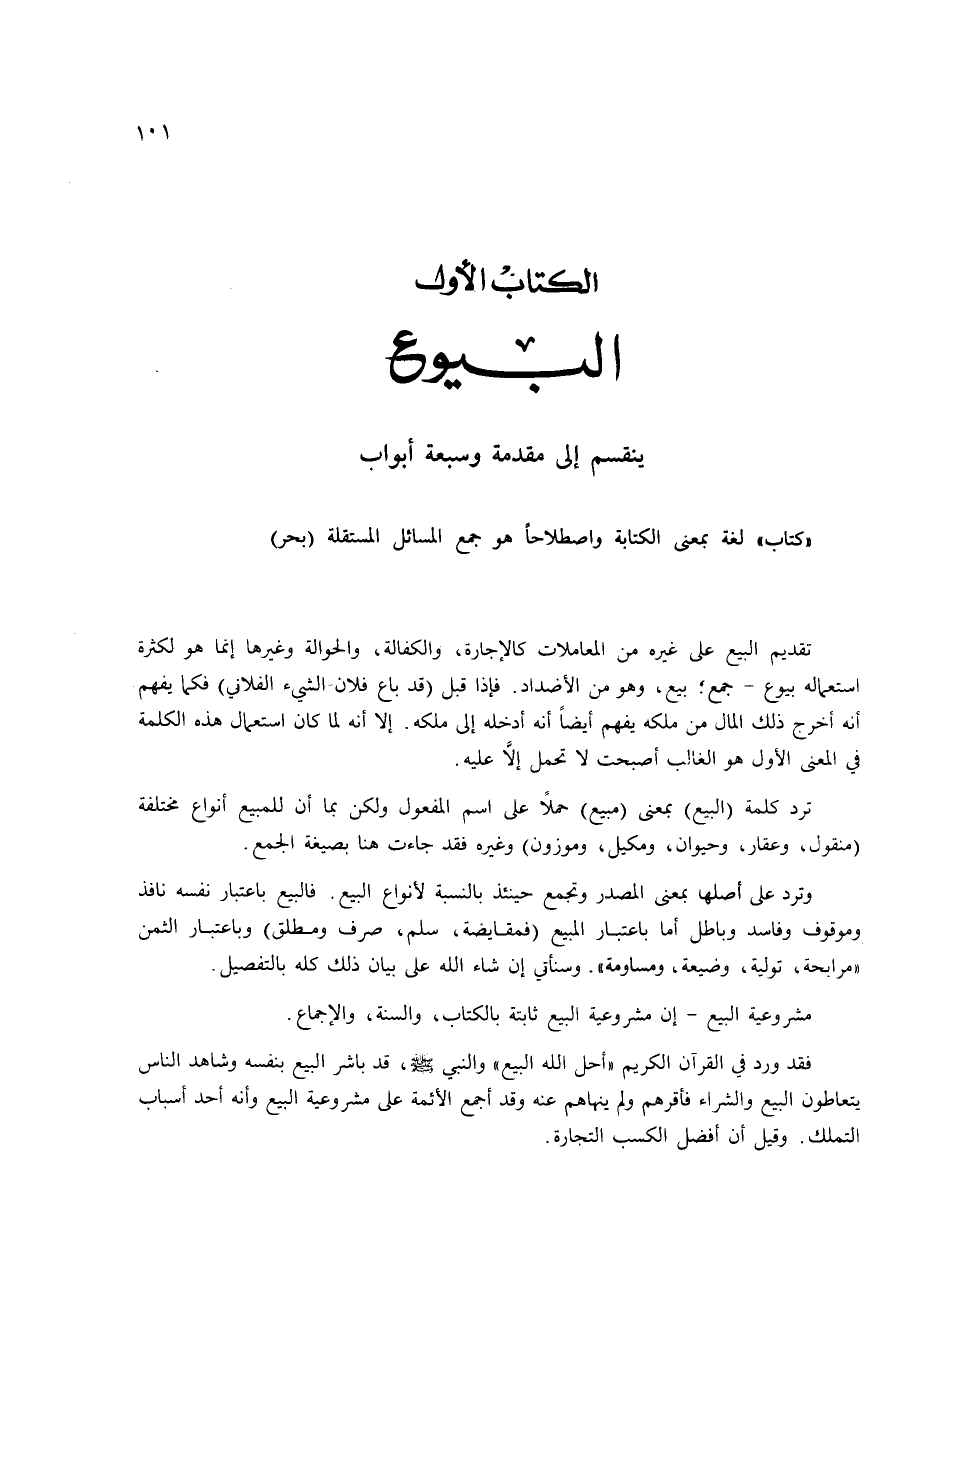 ١٠١
الكتاب الأول
البيوع
ينقسم إلى مقدمة وسبعة أبواب
«كتاب» لغة بمعنى الكتابة واصطلاحاً هو جمع المسائل المستقلة (بحر)
تقديم البيع على غيره من المعاملات كالإجارة، والكفالة، والحوالة وغيرها إنما هو لكثرة
استعماله بيوع - جمع؛ بيع، وهو من الأضداد. فإذا قبل (قد باع فلان الشيء الفلاني) فكما يفهم
أنه أخرج ذلك المال من ملكه يفهم أيضاً أنه أدخله إلى ملكه. إلا أنه لما كان استعمال هذه الكلمة
في المعنى الأول هو الغالب أصبحت لا تحمل إلاَّ عليه.
ترد كلمة (البيع) بمعنى (مبيع) حملاً على اسم المفعول ولكن بما أن للمبيع أنواع مختلفة
(منقول، وعقار، وحيوان، ومكيل، وموزون) وغيره فقد جاءت هنا بصيغة الجمع.
وترد على أصلها بمعنى المصدر وتجمع حينئذ بالنسبة لأنواع البيع. فالبيع باعتبار نفسه نافذ
وموقوف وفاسد وباطل أما باعتبار المبيع (فمقايضة، سلم، صرف ومطلق) وباعتبار الثمن
«مرابحة، تولية، وضيعة، ومساومة». وسنأتي إن شاء الله على بيان ذلك كله بالتفصيل.
مشروعية البيع - إن مشروعية البيع ثابتة بالكتاب، والسنة، والإجماع.
فقد ورد في القرآن الكريم «أحل الله البيع» والنبي ﷺ، قد باشر البيع بنفسه وشاهد الناس
يتعاطون البيع والشراء فأقرهم ولم ينهاهم عنه وقد أجمع الأئمة على مشروعية البيع وأنه أحد أسباب
التملك. وقيل أن أفضل الكسب التجارة.